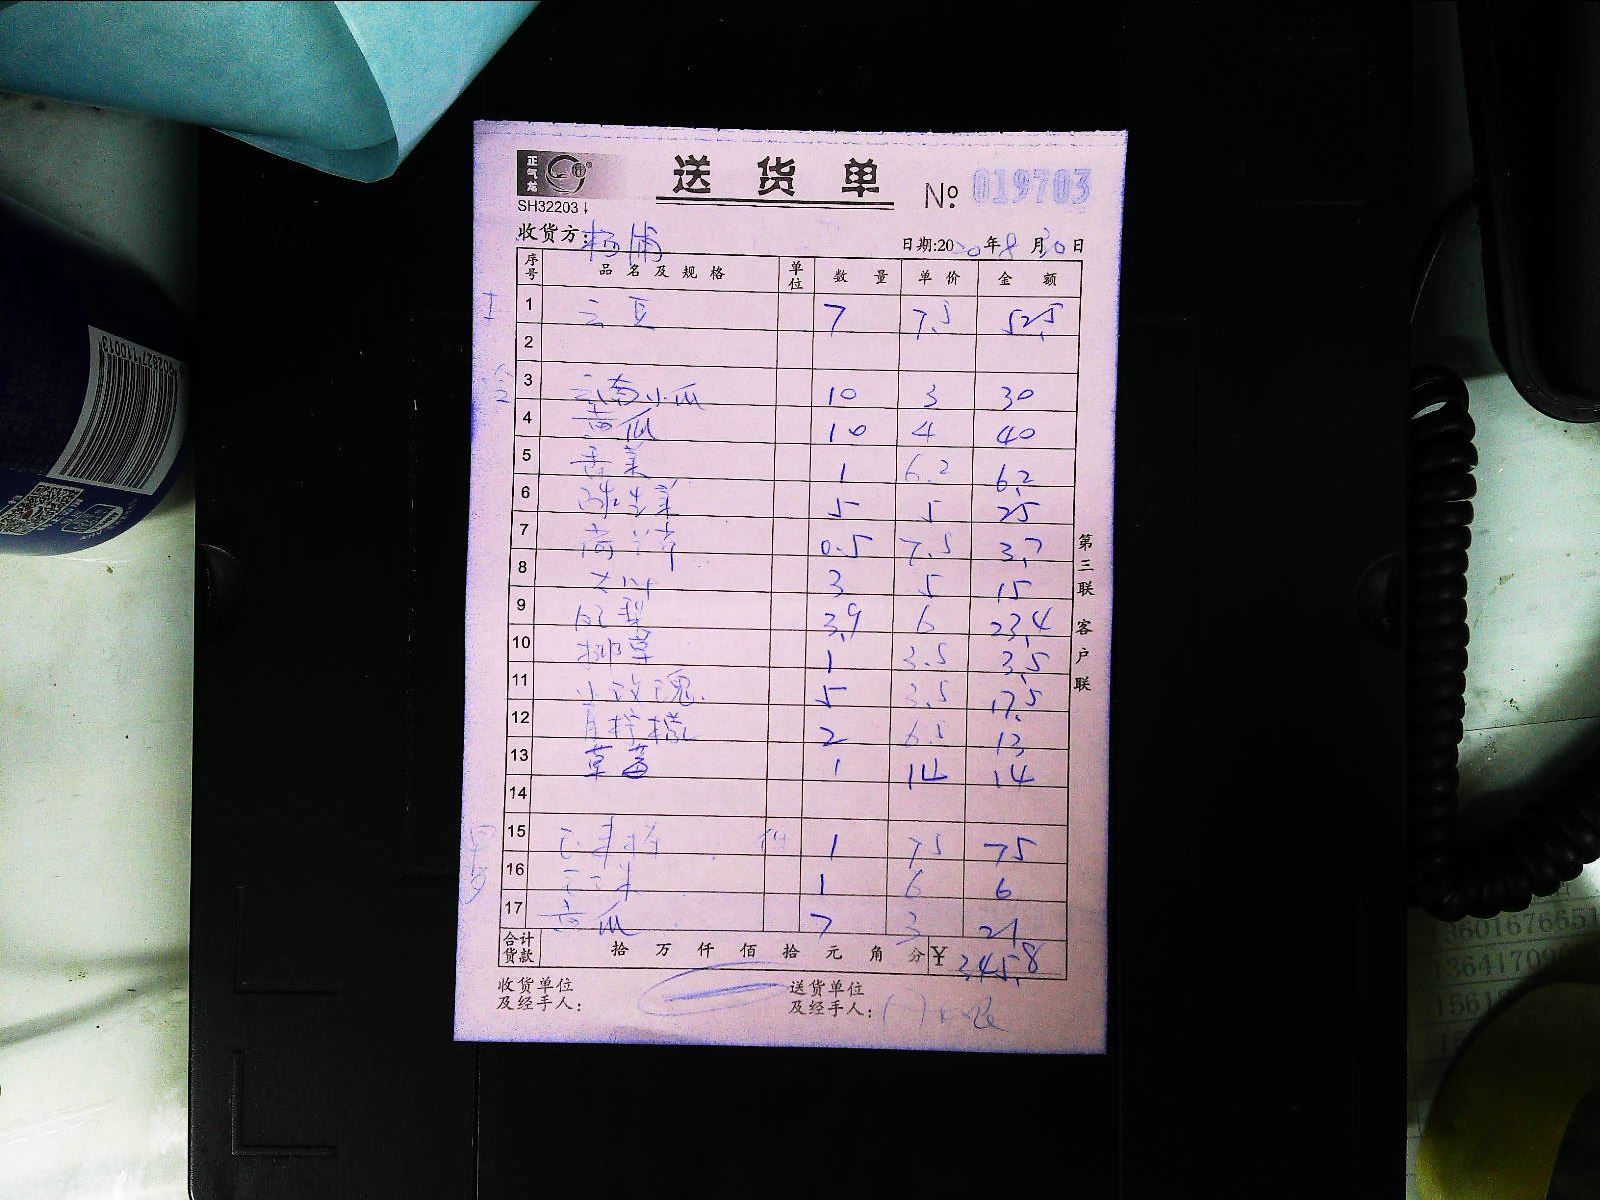 正气龙
送货单
№ 019703
SH32203
收货方: 杨浦
日期:2020年8月30日
序号 品名及规格 单位 数量 单价 金额
1 云豆 7 7.5 52.5
2
3 云南小瓜 10 3 30
4 黄瓜 10 4 40
5 香菜 1 6.2 6.2
6 球生菜 5 5 25
7 0.5 7.5 3.7
8 3 5 15
9 3.9 6 23.4
10 1 3.5 3.5
11 小玫瑰 5 3.5 17.5
12 青柠檬 2 6.5 13
13 草莓 1 14 14
14
15 1 75 75
16 玉米 1 6 6
17 黄瓜 7 3 21
合计货款 拾 万 仟 佰 拾 元 角 分 ¥ 345.8
收货单位及经手人:
送货单位及经手人:
第三联 客户联
6902827110013
13601676651